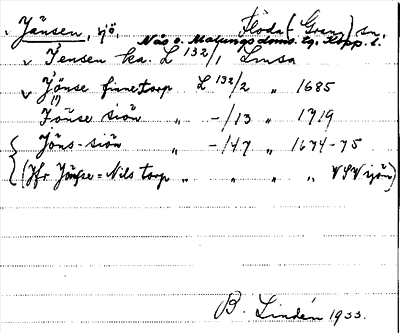 Jänsen, sjö Floda (Gran) sn,
Nås o. Malungs doms. tg. Kopp. l.
Jensen ka. L 132/1 Lmsa
Jönse finnetorp L 132/2 " 1685
Jönse siön " -/13 " 1719
Jöns-siön " -/47 " 1674-75
(Jfr Jönse=Nils torp " " " " VSV sjön)
B. Lindén 1933.